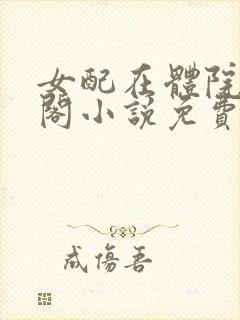 女配在體院
閣小說免費
成傷吾